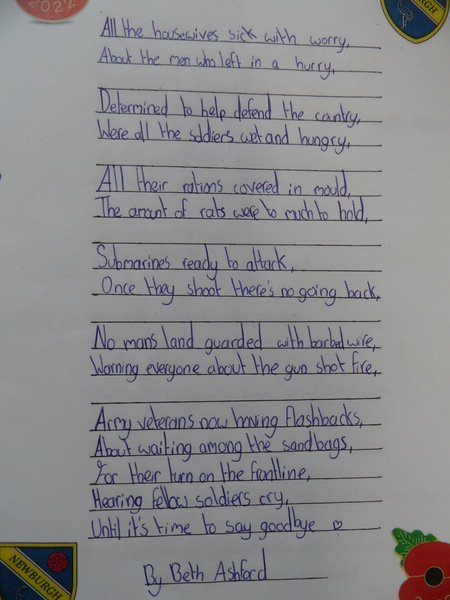 2021
NEWBURGH
All the housewives sick with worry,
About the men who left in a hurry,
Determined to help defend the country,
Were all the soldiers wet and hungry,
All their rations covered in mould,
The amount of rats were to much to hold,
Submarines ready to attack,
Once they shoot there's no going back,
No mans land guarded with barbed wire,
Warning everyone about the gun shot fire,
Army veterans now having flashbacks,
About waiting among the sandbags,
For their turn on the frontline,
Hearing fellow soldiers cry,
Until it's time to say goodbye ♡
By Beth Ashford
NEWBURGH